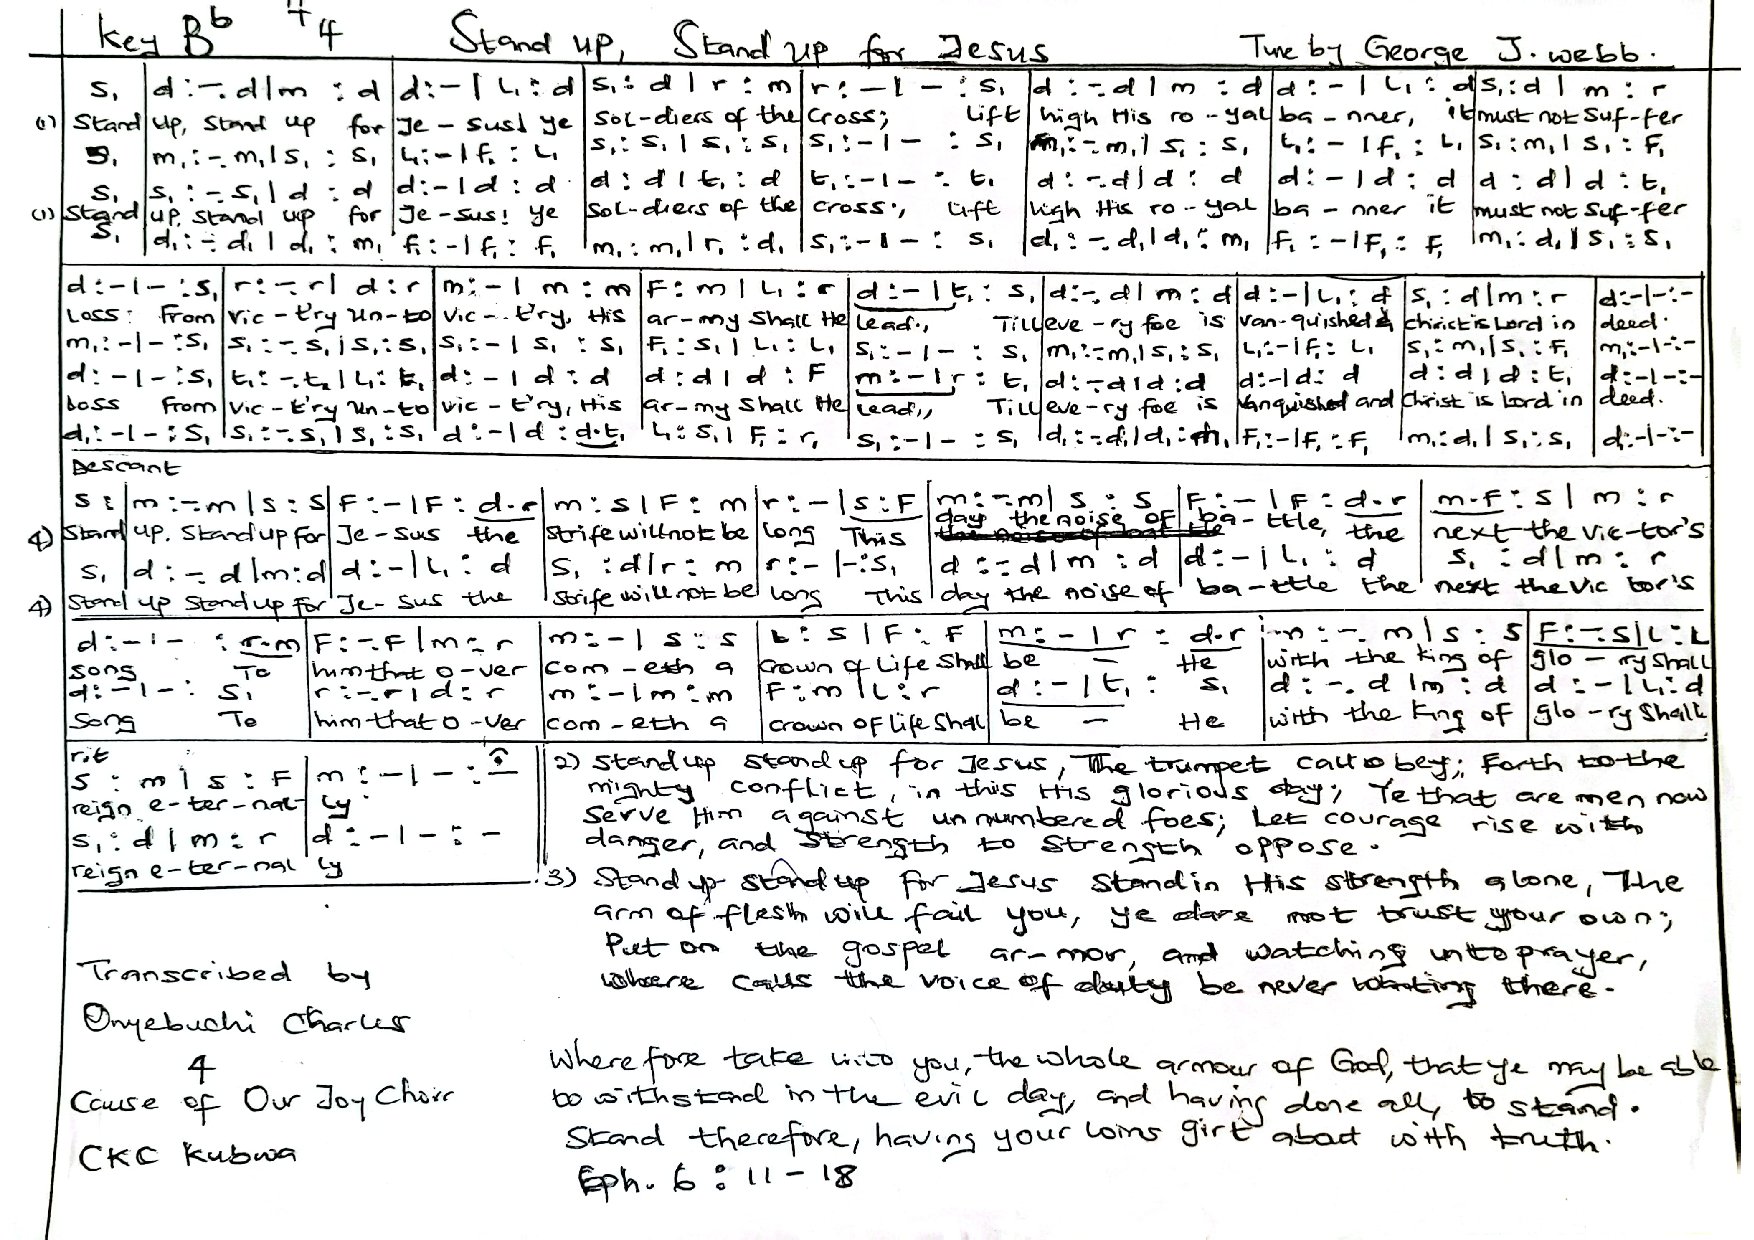 Key Bb 4/4 Stand up, Stand up for Jesus Tune by George J. Webb.
s₁ |d :-.d|m :d |d :-|l₁ :d |s₁ :d |r :m |r :-|- :s₁ |d :-.d|m :d |d :-|l₁ :d |s₁ :d |m :r
(1) Stand up, Stand up for Je-sus! ye Sol-diers of the Cross; Lift high His ro-yal ba-nner, it must not Suf-fer
s₁ |m₁ :-.m₁|s₁ :s₁ |l₁ :-|f₁ :l₁ |s₁ :s₁ |s₁ :s₁ |s₁ :-|- :s₁ |m₁ :-.m₁|s₁ :s₁ |l₁ :-|f₁ :l₁ |s₁ :m₁ |s₁ :F₁
s₁ |s₁ :-.s₁|d :d |d :-|d :d |d :d |t₁ :d |t₁ :-|- :t₁ |d :-.d|d :d |d :-|d :d |d :d |d :t₁
(1) Stand up, Stand up for Je-sus! ye Sol-diers of the cross; Lift high His ro-yal ba-nner it must not Suf-fer
s₁ |d₁ :-.d₁|d₁ :m₁ |f₁ :-|f₁ :f₁ |m₁ :m₁ |r₁ :d₁ |s₁ :-|- :s₁ |d₁ :-.d₁|d₁ :m₁ |F₁ :-|F₁ :F₁ |m₁ :d₁ |s₁ :s₁
d :-|- :s₁ |r :-.r|d :r |m :-|m :m |F :m |l₁ :r |d :-|t₁ :s₁ |d :-.d|m :d |d :-|l₁ :d |s₁ :d |m :r |d :-|- :-
Loss: From vic-t'ry un-to vic-t'ry, His ar-my Shall He Lead., Till eve-ry foe is van-quished & christ is Lord in deed.
m₁ :-|- :s₁ |s₁ :-.s₁|s₁ :s₁ |s₁ :-|s₁ :s₁ |F₁ :s₁ |l₁ :l₁ |s₁ :-|- :s₁ |m₁ :-.m₁|s₁ :s₁ |l₁ :-|f₁ :l₁ |s₁ :m₁ |s₁ :F₁ |m₁ :-|- :-
d :-|- :s₁ |t₁ :-.t₁|l₁ :t₁ |d :-|d :d |d :d |d :F |m :-|r :t₁ |d :-.d|d :d |d :-|d :d |d :d |d :t₁ |d :-|- :-
Loss From vic-t'ry un-to vic-t'ry, His ar-my Shall He Lead,, Till eve-ry foe is vanquished and Christ is Lord in deed.
d₁ :-|- :s₁ |s₁ :-.s₁|s₁ :s₁ |d :-|d :d.t₁ |l₁ :s₁ |F₁ :r₁ |s₁ :-|- :s₁ |d₁ :-.d₁|d₁ :m₁ |F₁ :-|F₁ :F₁ |m₁ :d₁ |s₁ :s₁ |d₁ :-|- :-
Descant
s : |m :-.m|s :s |F :-|F :d.r |m :s |F :m |r :-|s :F |m :-.m|s :s |F :-|F :d.r |m.F :s |m :r
4) Stand up. Stand up for Je-sus the Strife will not be long This day the noise of ba-ttle, the next the vic-tor's
s₁ |d :-.d|m :d |d :-|l₁ :d |s₁ :d |r :m |r :-|- :s₁ |d :-.d|m :d |d :-|l₁ :d |s₁ :d |m :r
4) Stand up Stand up for Je-sus the Strife will not be long This day the noise of ba-ttle the next the vic tor's
d :-|- :r.m |F :-.F|m :r |m :-|s :s |l :s |F :F |m :-|r :d.r |m :-.m|s :s |F :-.s|l :l
song To him that o-ver com-eth a Crown of Life Shall be — He with the king of glo-ry Shall
d :-|- :s₁ |r :-.r|d :r |m :-|m :m |F :m |l₁ :r |d :-|t₁ :s₁ |d :-.d|m :d |d :-|l₁ :d
Song To him that o-ver com-eth a crown of Life Shall be — He with the King of glo-ry Shall
rit
s :m |s :F |m :-|- :-
reign e-ter-nal- ly
s₁ :d |m :r |d :-|- :-
reign e-ter-nal ly
2) Stand up Stand up for Jesus, The trumpet call obey; Forth to the
mighty conflict, in this His glorious day; Ye that are men now
Serve Him against unnumbered foes; Let courage rise with
danger, and Strength to Strength oppose.
3) Stand up stand up for Jesus Stand in His strength alone, The
arm of flesh will fail you, ye dare not trust your own;
Put on the gospel ar-mor, and watching unto prayer,
where calls the voice of duty be never wanting there.
Transcribed by
Onyebuchi Charles
4
Cause of Our Joy Choir
CKC Kubwa
Wherefore take unto you, the whole armour of God, that ye may be able
to withstand in the evil day, and having done all, to stand.
Stand therefore, having your loins girt about with truth.
Eph. 6 : 11 - 18